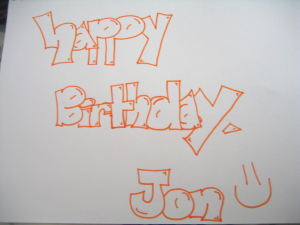 happy
Birthday.
Jon